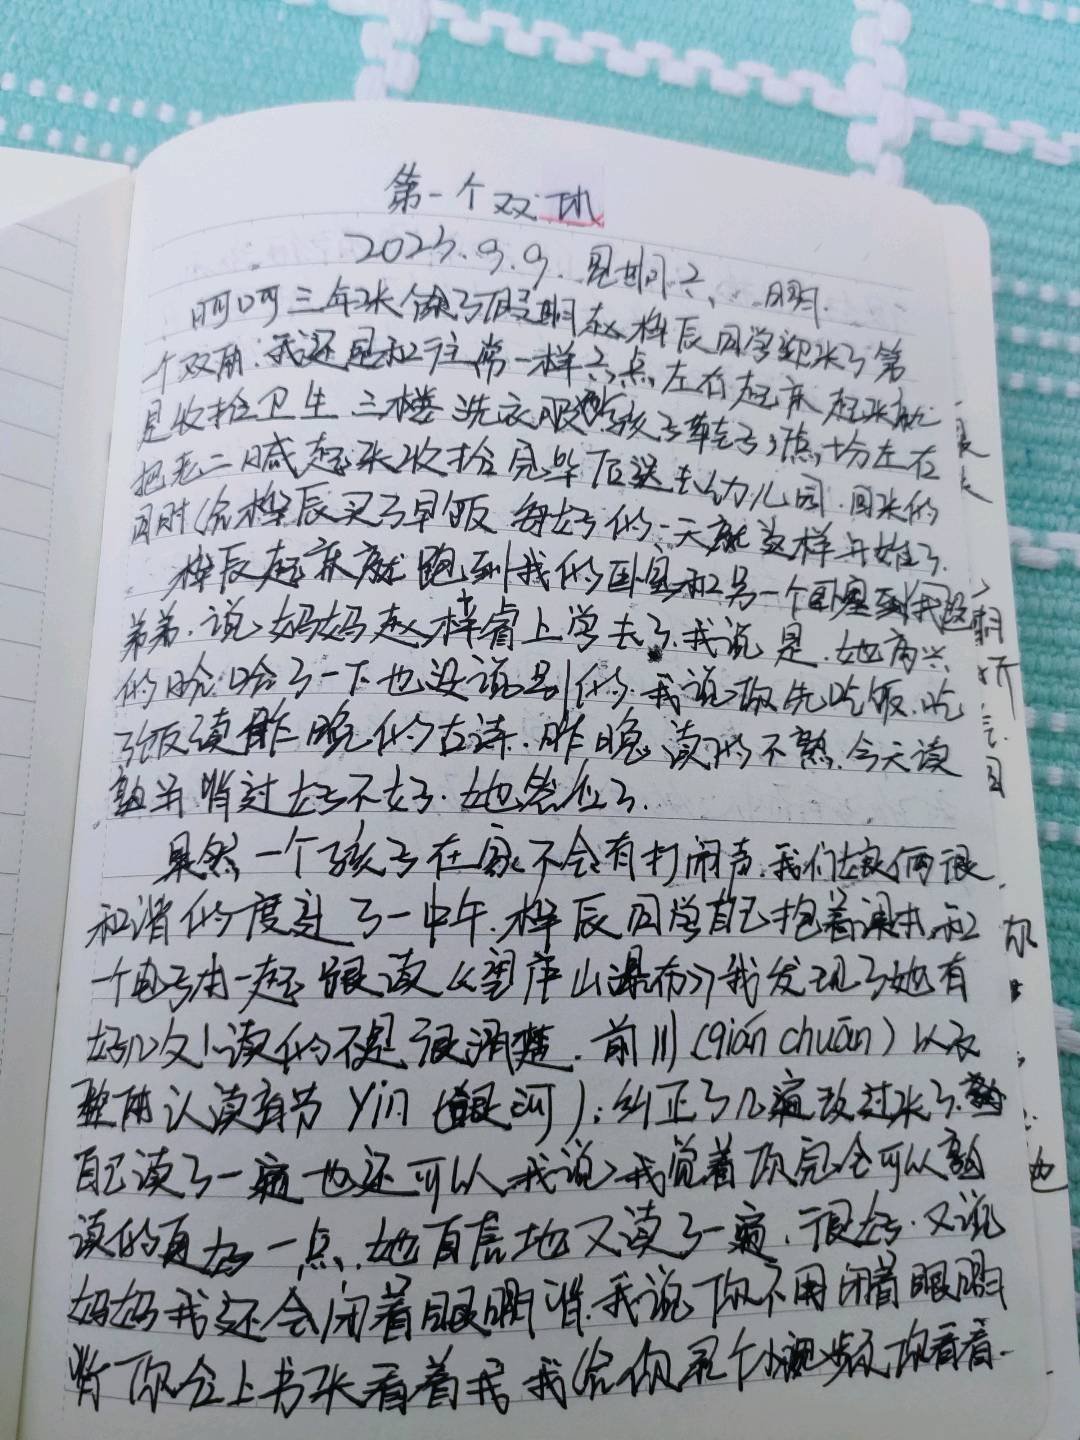 第一个双休
2023.9.9.星期六、晴.
时间三年来做了假期赵梓辰同学迎来了第
一个双休.我还是和往常一样六点左右起床起来就
是收拾卫生三楼洗衣服孩子
把老二喊起来收拾完毕后送去幼儿园.回来的
同时给梓辰买了早饭每好的一天就这样开始了.
梓辰起床就跑到我的卧室和另一个卧室到
弟弟.说妈妈赵梓睿上学去了.我说是.她高兴
的哈哈了一下也没说别的.我说你先吃饭.吃
了饭读昨晚的古诗.昨晚读的不熟.今天读
熟并背过好不好.她答应了.
果然一个孩子在家不会有打闹声.我们娘俩很
和谐的度过了一中午.梓辰同学自己抱着课本和
一个电子本一起跟读《望庐山瀑布》我发现了她有
好几次读的不是很清楚.前川(qián chuān)以及
整体认读音节 yín (银河);纠正了几遍改过来了.
自己读了一遍也还可以.我说我觉着你完全可以
读的更好一点.她自信地又读了一遍.很好.又说
妈妈我还会闭着眼睛背.我说你不用闭着眼睛
背你合上书来看着我我给你录个小视频你看看.